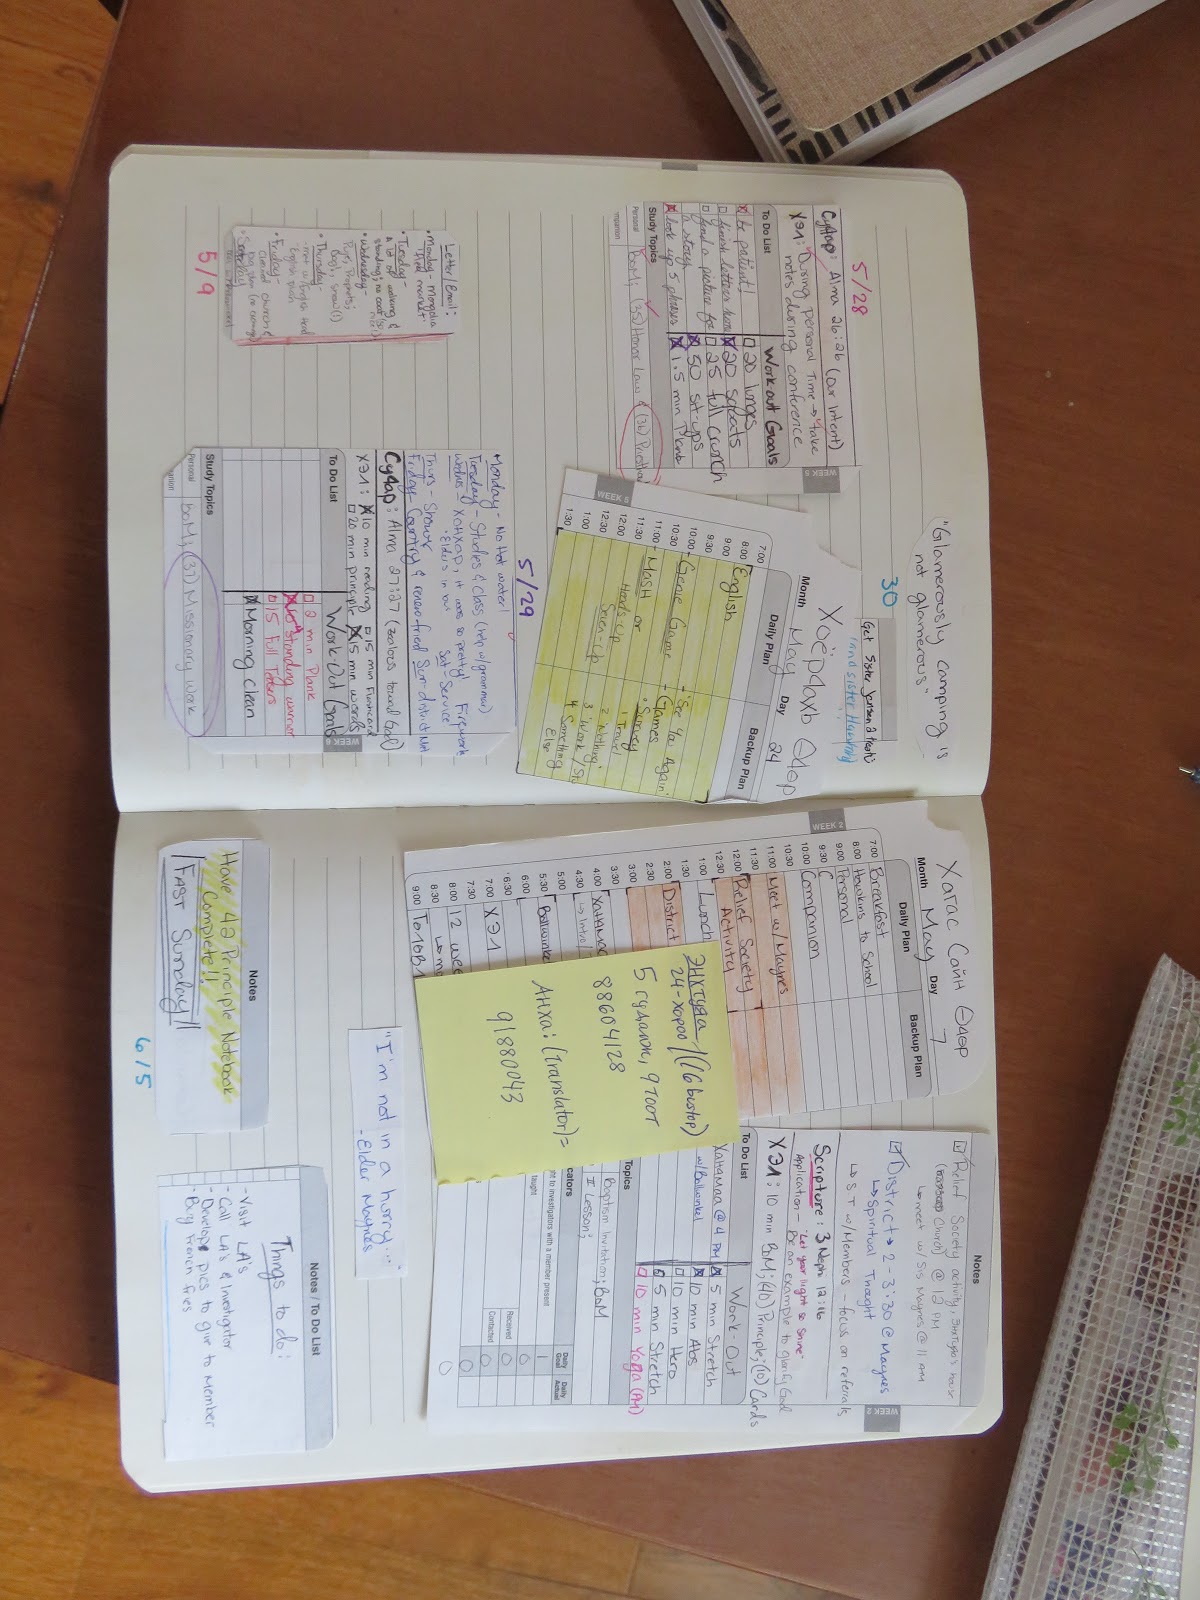 "Glamerously camping is
not glamerous"
5/28
Судар: Alma 26:26 (our Intent)
ХЭ1: During personal time → take
notes during conference
WEEK 5
To Do List
Work out Goals
be patient!
20 lunges
finish letters home
20 squats
find a picture for
25 full crunch
a story
50 sit-ups
look up 5 phrases
1.5 min Plank
Study Topics
Personal
BoM; (35) Honor Law & (36)
30
Get Sister Jensen a treat!
(and sister
Хоёрдахь Өдөр
Month May Day 24
Daily Plan
Backup Plan
WEEK 5
7:00
8:00 English
9:00
9:30
10:00 Genie Game
- "See You Again"
10:30
- Games
11:00 MASH or
"Survey
11:30 Heads-Up
1 Travel
12:00 Seven-Up
2 "Nothing"
12:30
3 Work/St
1:00
4 Something
1:30
Else
Letter/Email:
• Monday - Mongolia
"third market"
• Tuesday -
a lot of walking &
standing; no
• Wednesday -
• Thursday -
• Friday -
English
cleaned church &
• Saturday
5/9
5/29
Monday - No Hot water!
Tuesday - Studies & Class (help w/grammar)
Wednes - ХОНХОР, it was so pretty! Firework
Elders in our
Sat - Service
Thurs - Shower
Friday - Country & renew-fried Sun - district
Сударь: Alma 27:27 (zealous toward God)
ХЭ1: 10 min reading 15 min Financial
20 min principl 15 min words
WEEK 6
To Do List
Work Out Goals
2 min Plank
Standing warrior
15 Full Teasers
Morning Clean
Study Topics
Personal
BoM; (37) Missionary Work
Хагас Сайн Өдөр
Month May Day 7
Daily Plan
Backup Plan
WEEK 2
7:00 Breakfast
8:00 Hawkins to School
9:00 Personal
9:30 C
10:00 Companion
10:30
11:00 Meet w/Maynes
11:30
12:00 Relief Society
12:30 Activity
1:00 Lunch
1:30
2:00 District
2:30
3:00
3:30
4:00 Хатамаа
4:30 ↳ Intro/
5:00
5:30 Bollwinke
6:00
6:30
7:00 ХЭ1
7:30
8:00 12 wee
8:30
9:00
Энхтуяа / (16 bustop)
24-хороо
5 гудамж, 9 тоот
88604128
Анха: (translator)=
91880043
Notes
Relief Society activity, Энхтуяа's house
Church) @ 12 PM
↳ meet w/ Sis Maynes @ 11 AM
District → 2 - 3:30 @ Maynes
↳ Spiritual Thought
↳ ST w/Members - focus on referrals
WEEK 2
Scripture: 3 Neph 12:16
Application - "Let your light so shine"
Be an example to glorify God
ХЭ1: 10 min BoM; (40) Principle; (10) Cards
To Do List
Work-Out
Хатамаа @ 4 PM
5 min Stretch
w/Bollwinkel
10 min Abs
10 min Hero
5 min Stretch
10 min Yoga (AM)
Topics
Baptism Invitation; BoM
I Lesson;
cators
Daily Goal
Daily Actual
ht to investigators with a member present
1
taught
0
Received
0
Contacted
0
0
0
"I'm not in a hurry..."
- Elder Maynes
Notes
Have 40 Principle Notebook
Complete!!
FAST Sunday!!
6/5
Notes / To Do List
Things to do:
- Visit LA's
- Call LA's & Investigator
- Develop pics to give to Member
- Buy French fries